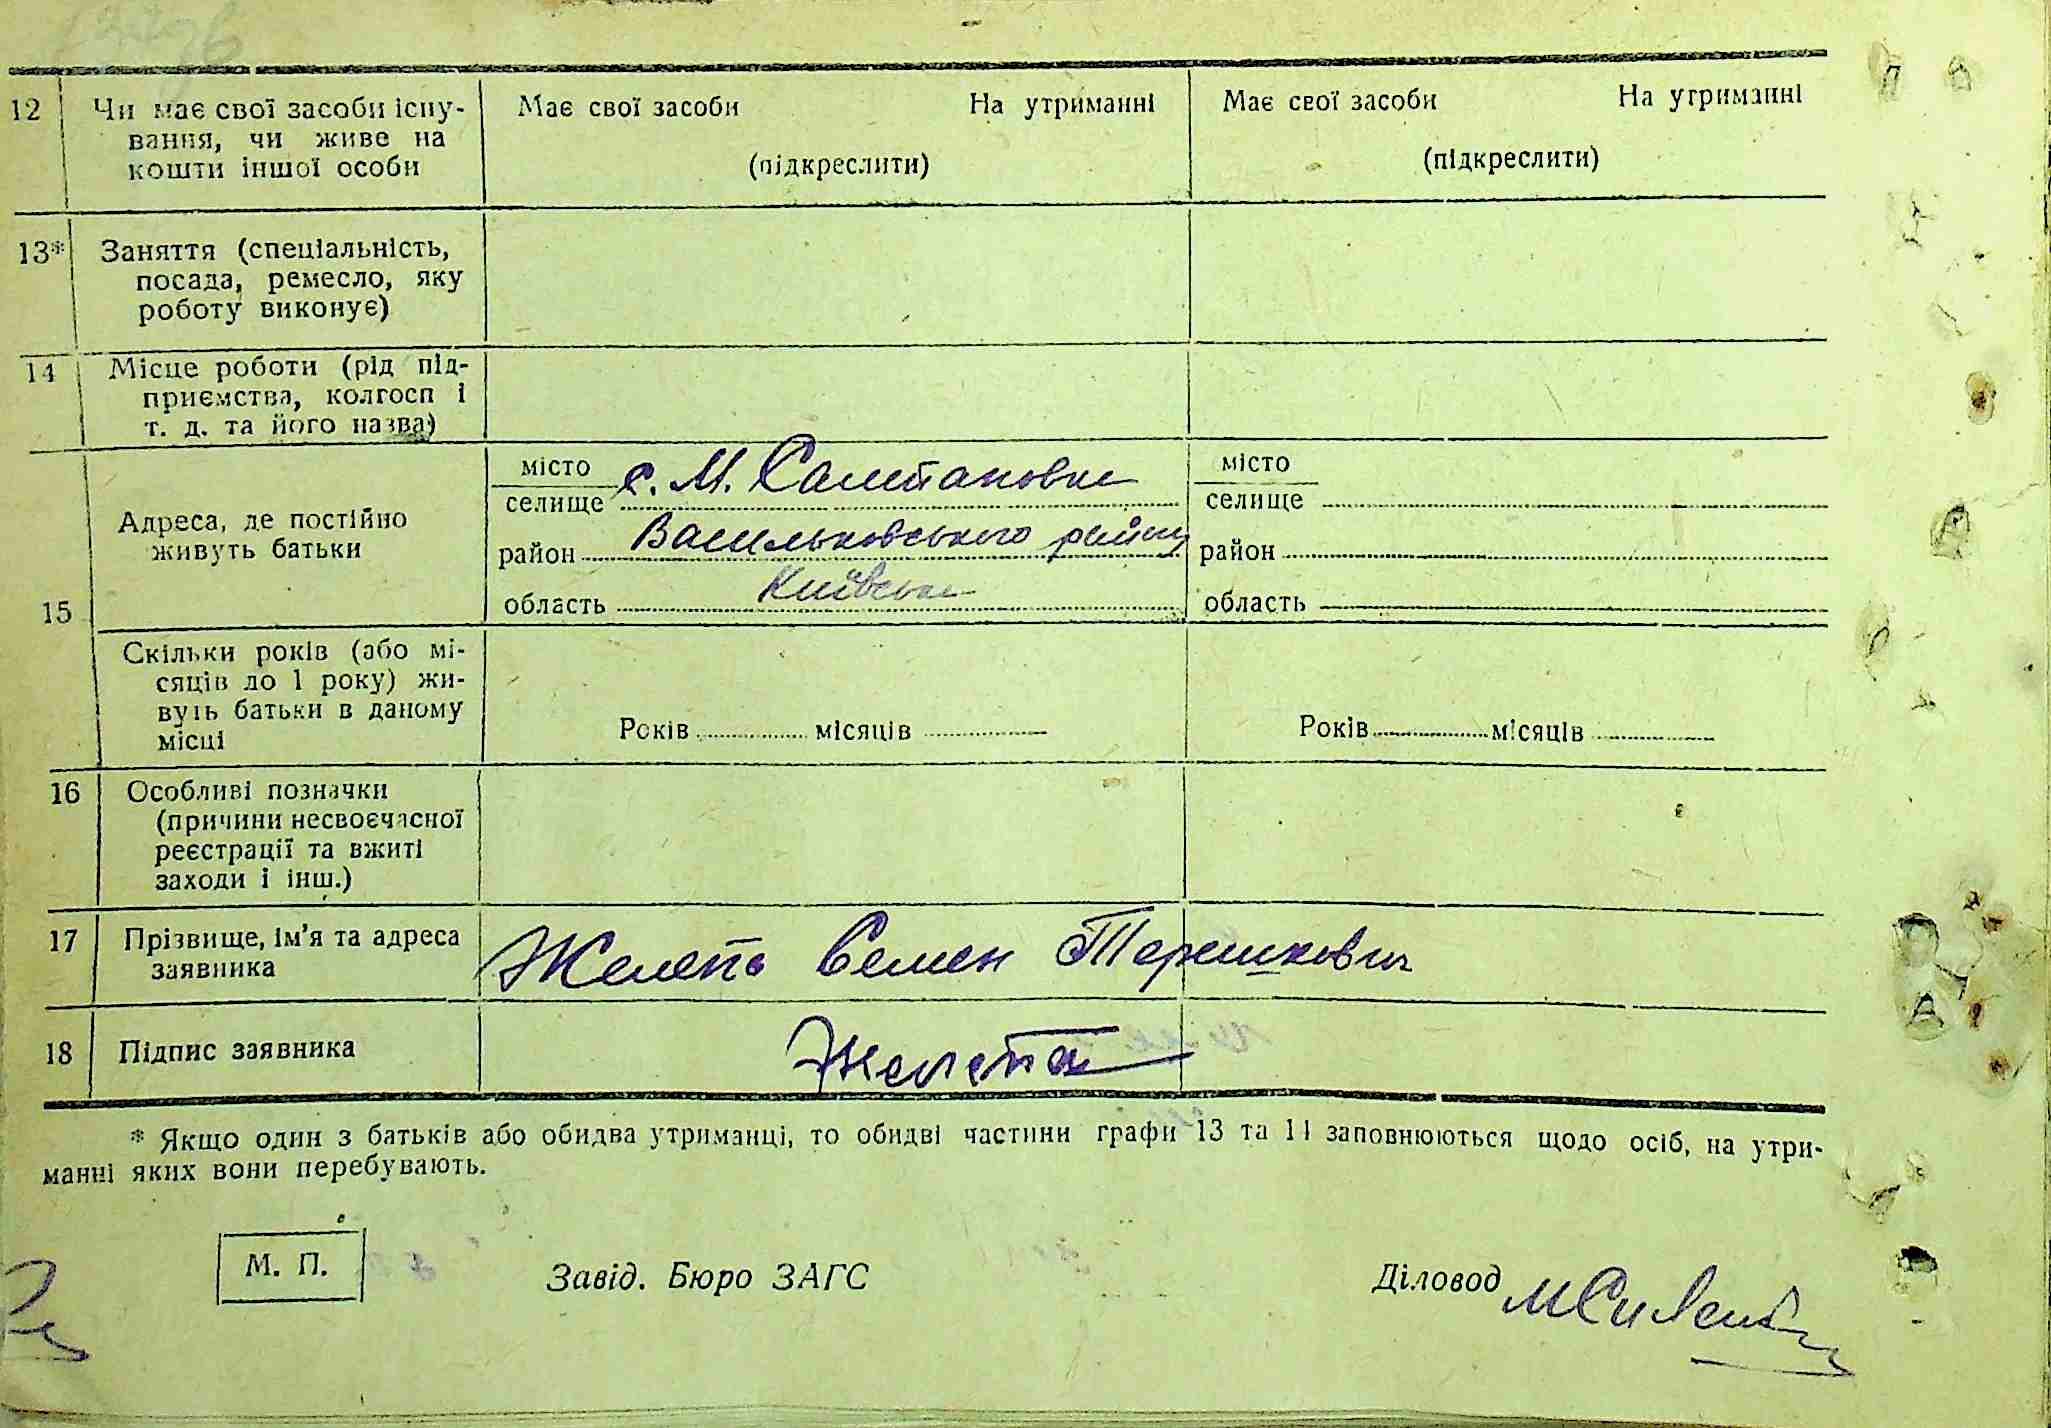 12 Чи має свої засоби існу-
вання, чи живе на
кошти іншої особи
Має свої засоби На утриманні
(підкреслити)
Має свої засоби На утриманні
(підкреслити)
13* Заняття (спеціальність,
посада, ремесло, яку
роботу виконує)
14 Місце роботи (рід під-
приємства, колгосп і
т. д. та його назва)
15
Адреса, де постійно
живуть батьки
місто
селище с. М. Салтановка
район Васильковського району
область Київська
місто
селище
район
область
Скільки років (або мі-
сяців до 1 року) жи-
вуть батьки в даному
місці
Років місяців
Років місяців
16 Особливі позначки
(причини несвоєчасної
реєстрації та вжиті
заходи і інш.)
17 Прізвище, ім'я та адреса
заявника
Желєпа Семен Терешкович
18 Підпис заявника
* Якщо один з батьків або обидва утриманці, то обидві частини графи 13 та 14 заповнюються щодо осіб, на утри-
манні яких вони перебувають.
М. П.
Завід. Бюро ЗАГС
Діловод